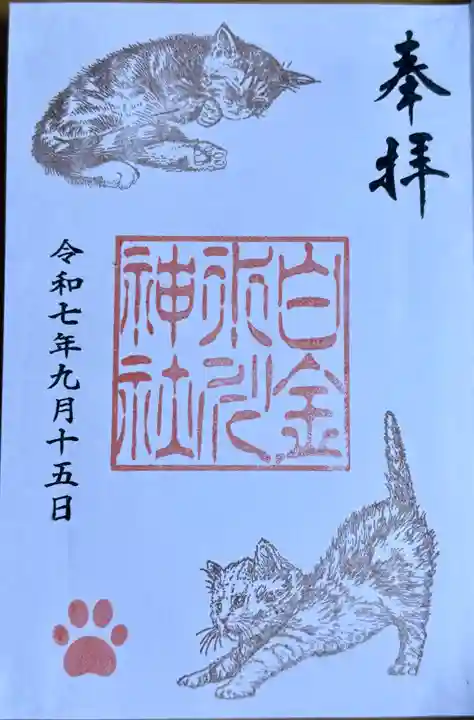 奉拝
白金
氷川
神社
令和七年九月十五日